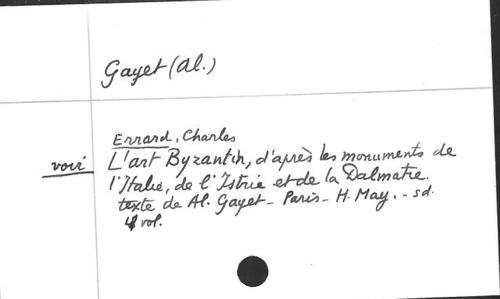 Gayet (Al.)
Errard, Charles
voir L'art Byzantin, d'après les monuments de
l'Italie, de l'Istrie et de la Dalmatie.
texte de Al. Gayet - Paris - H. May. - sd.
4 vol.